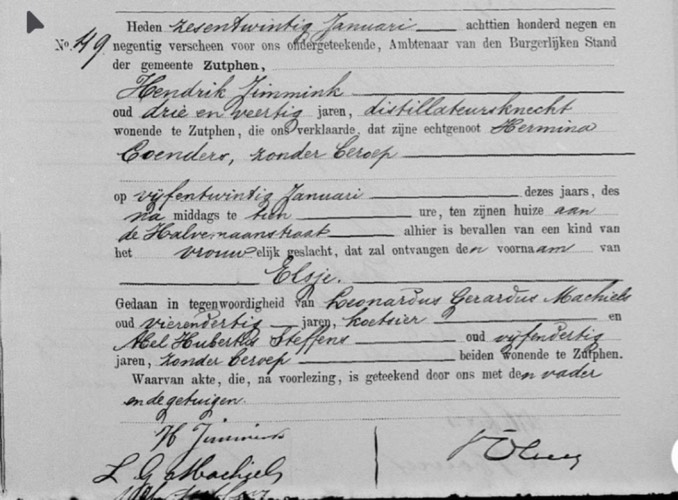 Heden zesentwintig Januari achttien honderd negen en
No. 49. negentig verscheen voor ons ondergeteekende, Ambtenaar van den Burgerlijken Stand
der gemeente Zutphen,
Hendrik Jimmink
oud drie en veertig jaren, distillateursknecht
wonende te Zutphen, die ons verklaarde, dat zijne echtgenoot Hermina
Coenders, zonder beroep
op vijfentwintig Januari dezes jaars, des
na middags te tien ure, ten zijnen huize aan
de Halvemaanstraat alhier is bevallen van een kind van
het vrouwelijk geslacht, dat zal ontvangen den voornaam van
Elsje.
Gedaan in tegenwoordigheid van Leonardus Gerardus Machiels
oud vierendertig jaren, koetsier en
Abel Hubertus Steffens oud vijfendertig
jaren, zonder beroep beiden wonende te Zutphen.
Waarvan akte, die, na voorlezing, is geteekend door ons met den vader
en de getuigen.
H Jimmink
L. G. Machiels